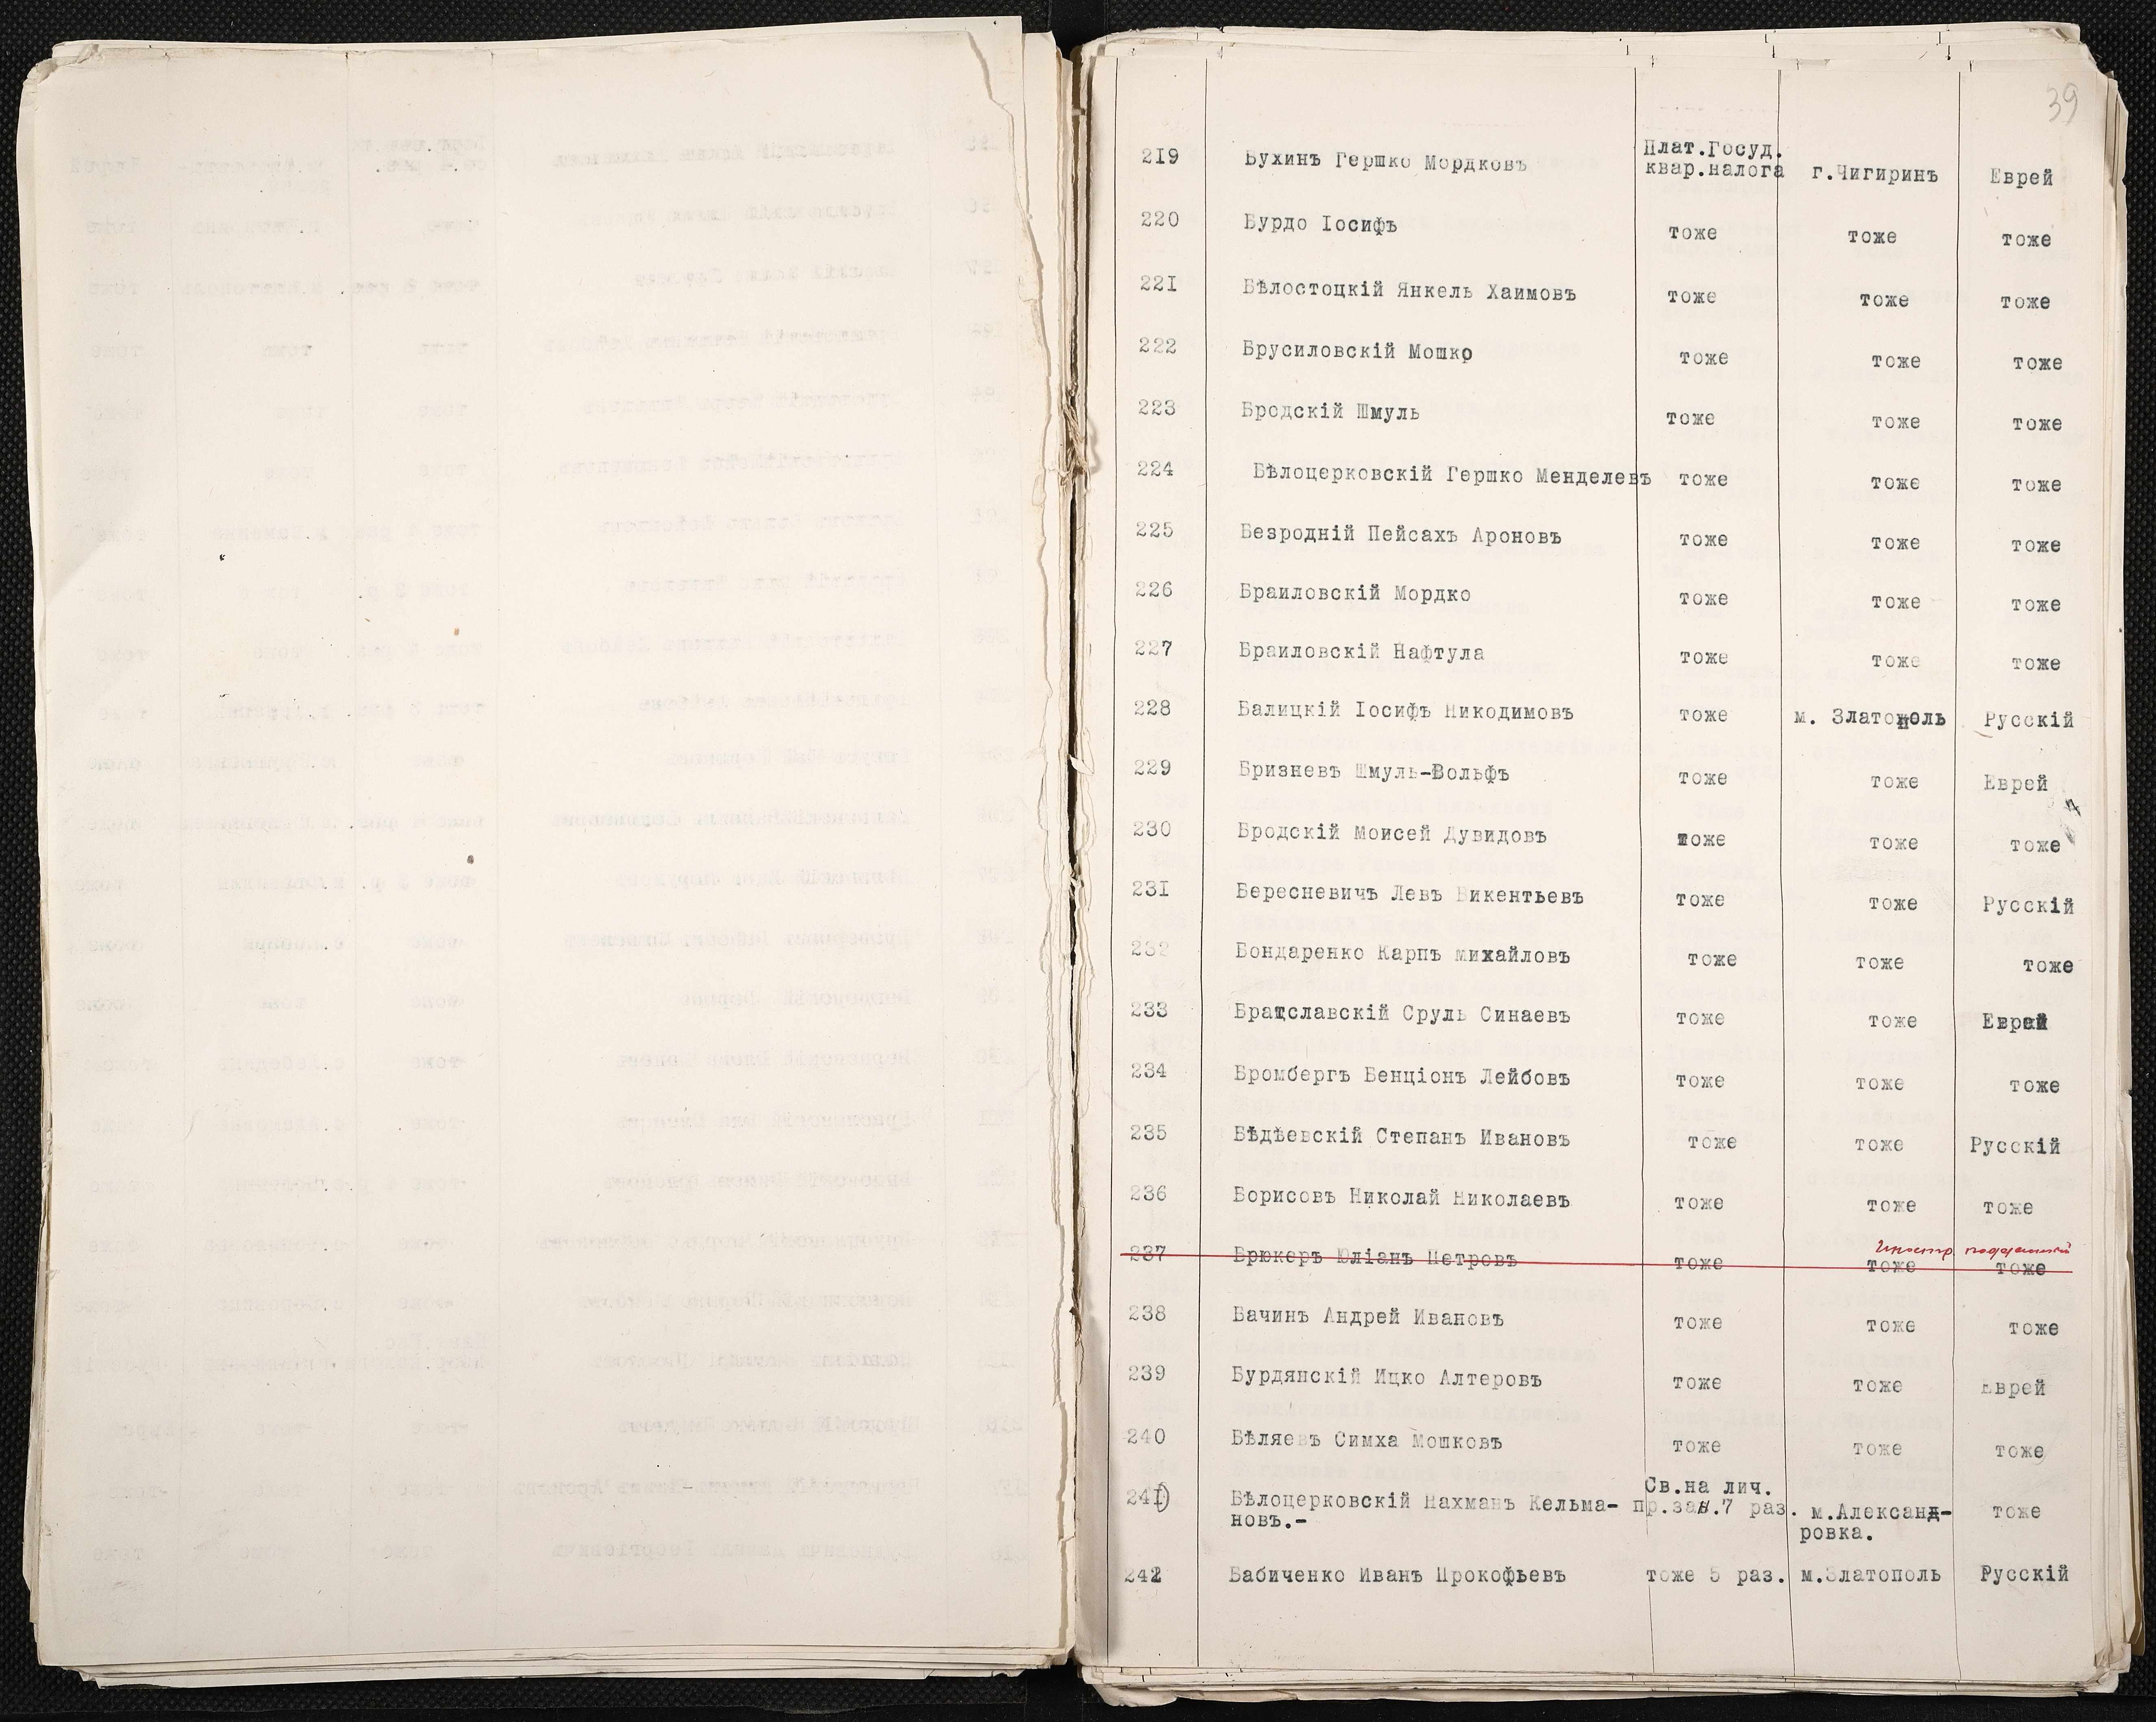 39
219 Бухинъ Гершко Мордковъ Плат.Госуд. квар.налога г.Чигиринъ Еврей
220 Бурдо Іосифъ тоже тоже тоже
221 Бѣлостоцкій Янкель Хаимовъ тоже тоже тоже
222 Брусиловскій Мошко тоже тоже тоже
223 Бродскій Шмуль тоже тоже тоже
224 Бѣлоцерковскій Гершко Менделевъ тоже тоже тоже
225 Безродній Пейсахъ Ароновъ тоже тоже тоже
226 Браиловскій Мордко тоже тоже тоже
227 Браиловскій Нафтула тоже тоже тоже
228 Балицкій Іосифъ Никодимовъ тоже м. Златополь Русскій
229 Бризневъ Шмуль-Вольфъ тоже тоже Еврей
230 Бродскій Моисей Дувидовъ тоже тоже тоже
231 Бересневичъ Левъ Викентьевъ тоже тоже Русскій
232 Бондаренко Карпъ Михайловъ тоже тоже тоже
233 Брацславскій Сруль Синаевъ тоже тоже Еврей
234 Бромбергъ Бенціонъ Лейбовъ тоже тоже тоже
235 Бѣдѣевскій Степанъ Ивановъ тоже тоже Русскій
236 Борисовъ Николай Николаевъ тоже тоже тоже
Иностр подданный
237 Брюкеръ Юліанъ Петровъ тоже тоже тоже
238 Бачинъ Андрей Ивановъ тоже тоже тоже
239 Бурдянскій Ицко Алтеровъ тоже тоже Еврей
240 Бѣляевъ Симха Мошковъ тоже тоже тоже
Св.на лич.
241) Бѣлоцерковскій Нахманъ Кельма- пр.зан.7 раз. м.Александ- тоже
новъ.- ровка.
242 Бабиченко Иванъ Прокофьевъ тоже 5 раз. м.Златополь Русскій